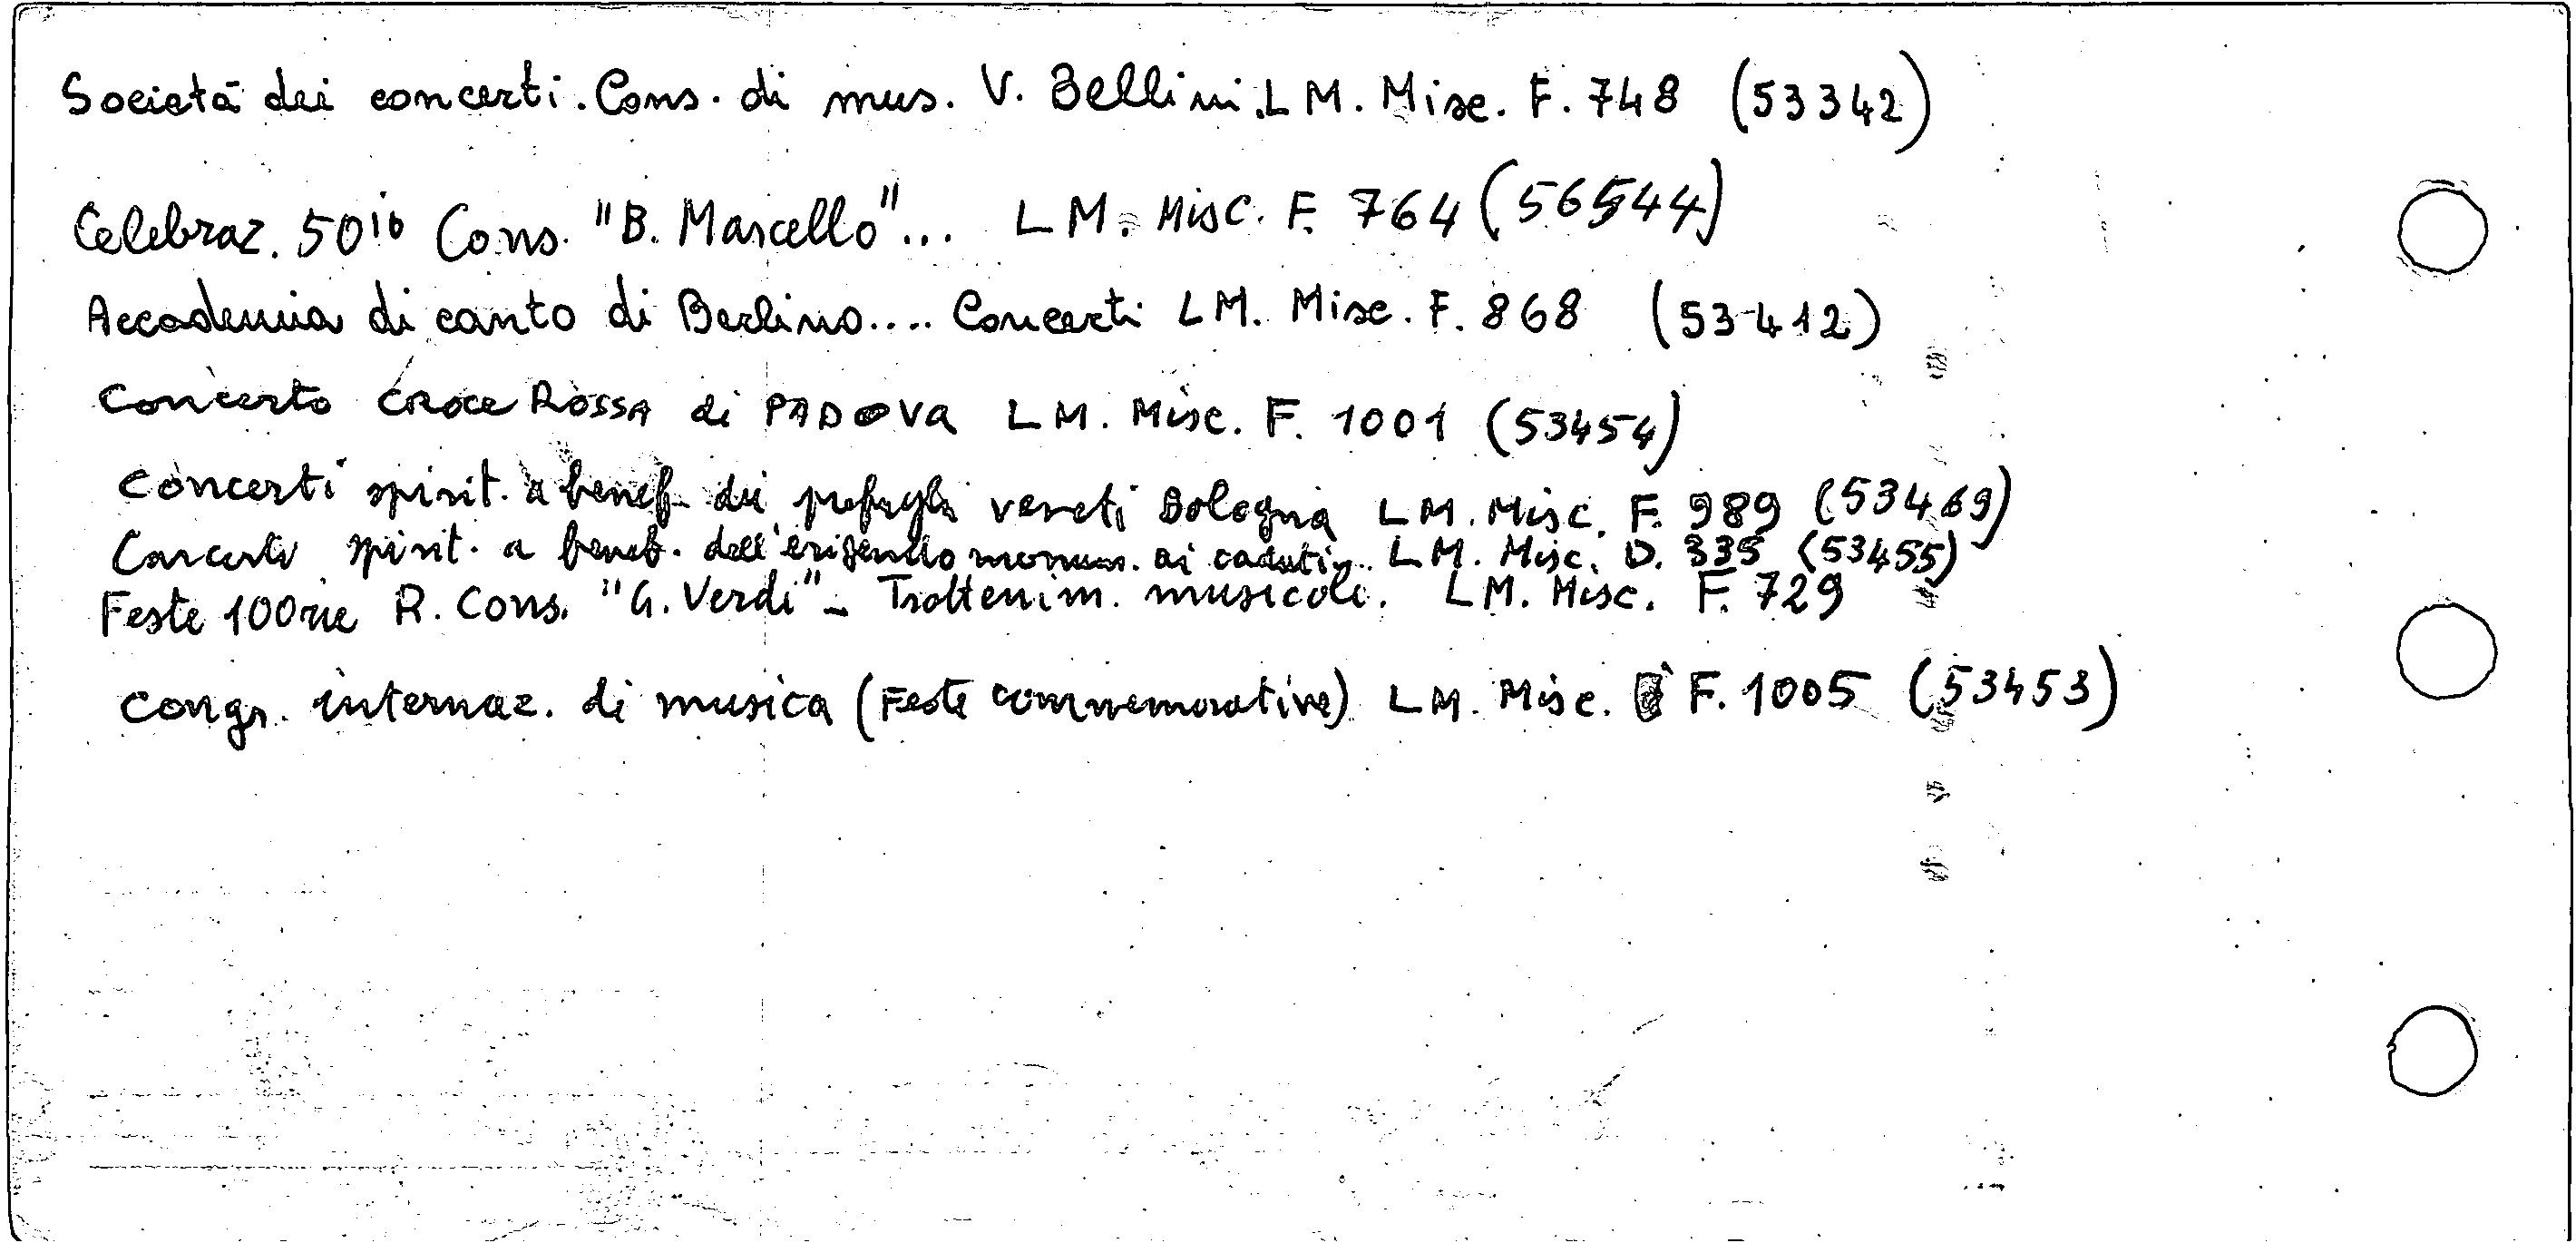 Società dei concerti. Cons. di mus. V. Bellini. LM. Misc. F. 748 (53342)
Celebraz. 50io Cons. "B. Marcello"... LM. Misc. F. 764 (56544)
Accademia di canto di Berlino.... Concerti LM. Misc. F. 868 (53412)
Concerto CROCE ROSSA di PADOVA LM. Misc. F. 1001 (53454)
Concerti spirit. a benef. dei profughi veneti Bologna LM. Misc. F. 989 (53469)
Concerti spirit. a benef. dell'erigendo monum. ai caduti... LM. Misc. D. 335 (53455)
Feste 100rie R. Cons. "G. Verdi" - Trattenim. musicali. LM. Misc. F. 729
Congr. internaz. di musica (Feste commemorative) LM. Misc. F. 1005 (53453)